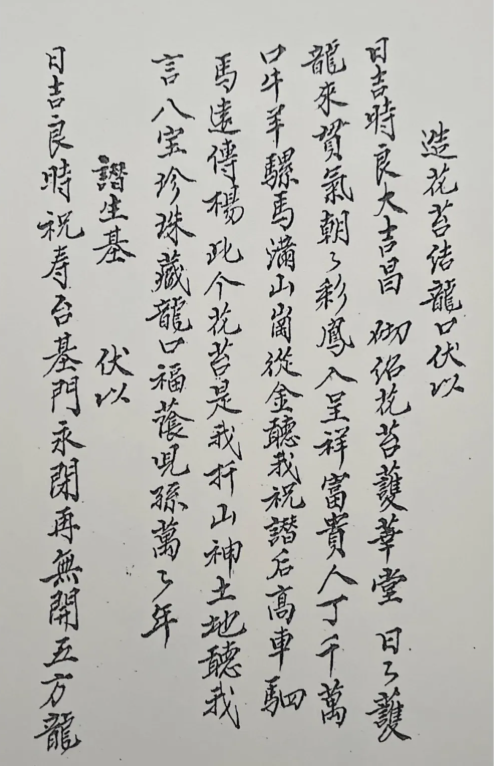 造花苔结龍口伏以
日吉時良大吉昌 砌结花苔護華堂 日々護
龍來貫氣朝々彩鳳入呈祥富貴人丁千萬
口牛羊騾馬滿山崗從金聽我祝諧后高車駟
馬遠傳楊此个花苔是我扦山神土地聽我
言八宝珍珠藏龍口福蔭児孫萬々年
諧生基 伏以
日吉良時祝寿台基門永閉再無開五方龍